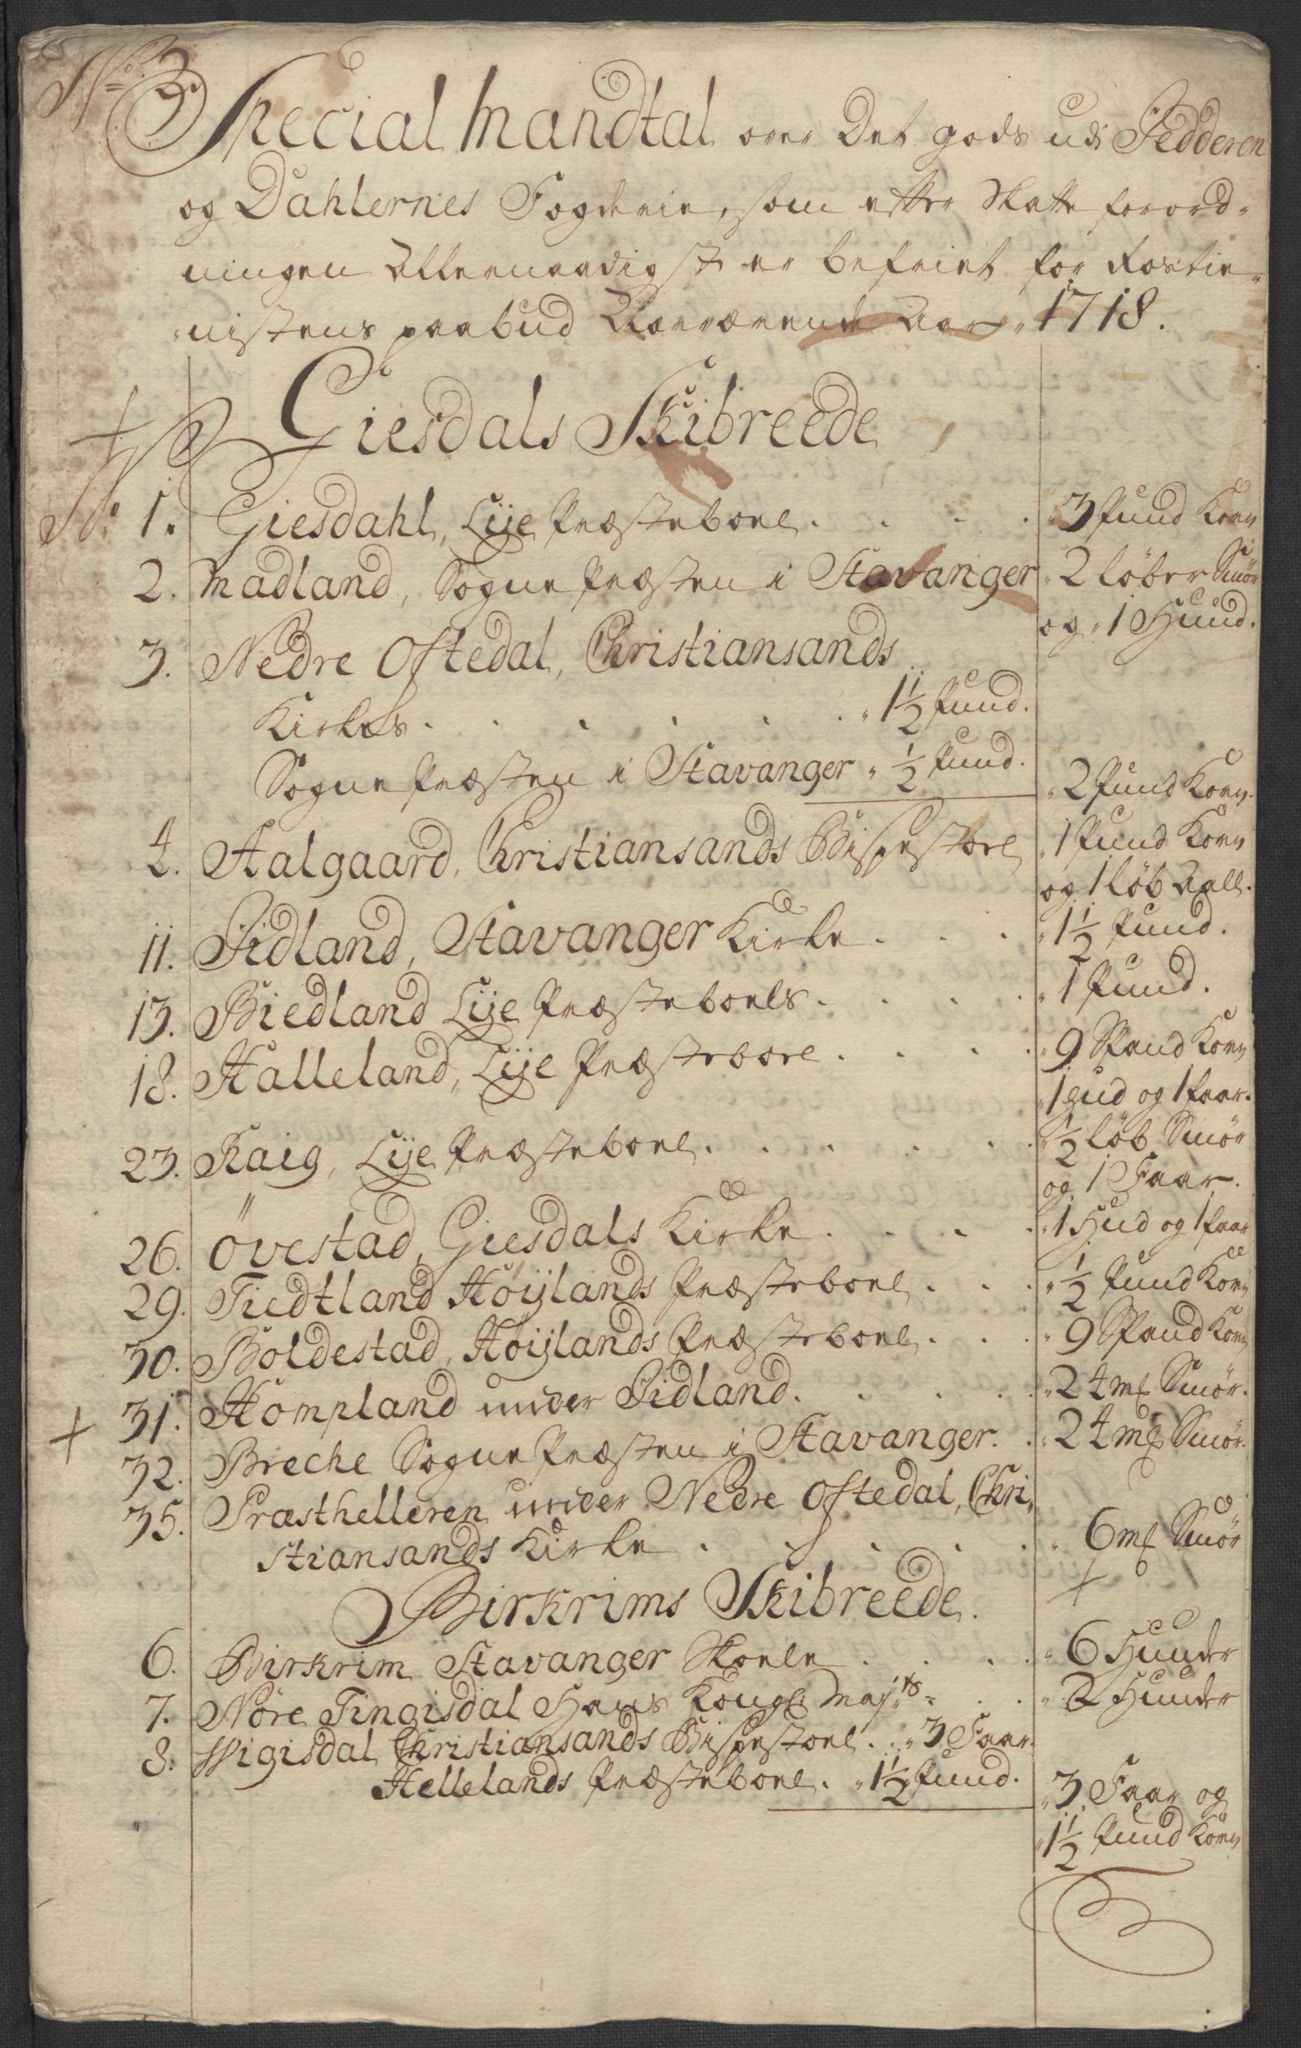 No 3.
Special Mandtal over Det gods udi Jedderen
og Dahlernes Fogderie, som efter Skatte forord-
ningen Allernaadigst er befriet for Rostie-
nistens paabud Nærværende Aar 1718.
Giesdals Skibreede
No 1. Giesdahl, Lÿe Præsteboel. . . . 3 Pund Korn
2. Madland, Sogne Præsten i Stavanger 2 løber Smør
og 1 Huud.
3. Nedre Oftedal, Christiansands
Kirkes. . . . . . 1 1/2 Pund.
Sogne Præsten i Stavanger 1/2 Pund. 2 Pund Korn.
4. Aalgaard, Christiansands Bispestoel 1 Pund Korn
og 1 løb Salt.
11. Fidland, Stavanger Kirke . . . 1 1/2 Pund.
13. Biedland Lÿe Præsteboels. . . . 1 Pund.
18. Halleland, Lÿe Præsteboel. . . . 9 Spand Korn
1 Hud og 1 faar.
23. Kaig, Lÿe Præsteboel. . . . . 1/2 løb Smør
og 1 Faar.
26. Övestad, Giesdals Kirke . . . . 1 Hud og 1 faar
29. Tiedtland Høÿlands Præsteboel . . . 1/2 Pund Korn
30. Boldestad, Høÿlands Præsteboel. . . 9 Spand Korn
31. Hompland under Fidland. . . . . 24 mk Smør.
32. Breche Sogne Præsten i Stavanger. . 24 mk Smør.
35. Præsthelleren under Nedre Oftedal, Chri-
stiansands Kirke . . . . . 6 mk Smør
Birkrims Skibreede.
6. Birkrim Stavanger Skoele . . . . 6 Huuder
7. Nøre Tingisdal Hans Kongl Mayts . . 2 Huuder
8. Wigisdal Christiansands Bispestoel. . 3 Faar.
Hellelands Præsteboel. 1 1/2 Pund. 3 Faar og
1 1/2 Pund Korn